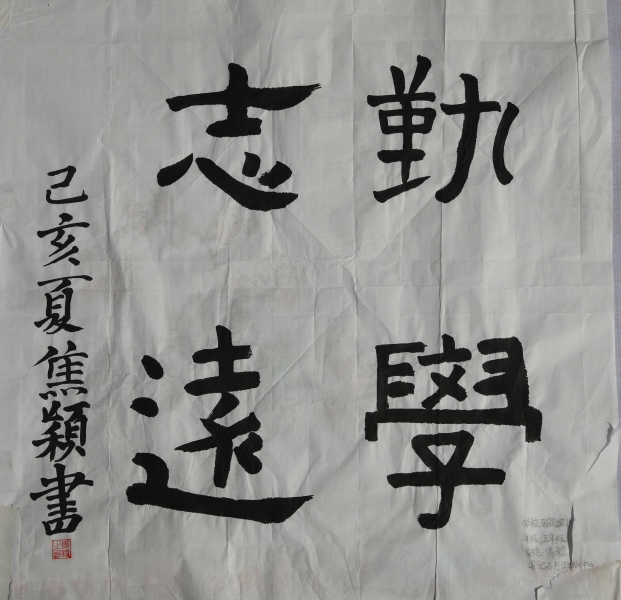 勤學
志遠
己亥夏焦穎書